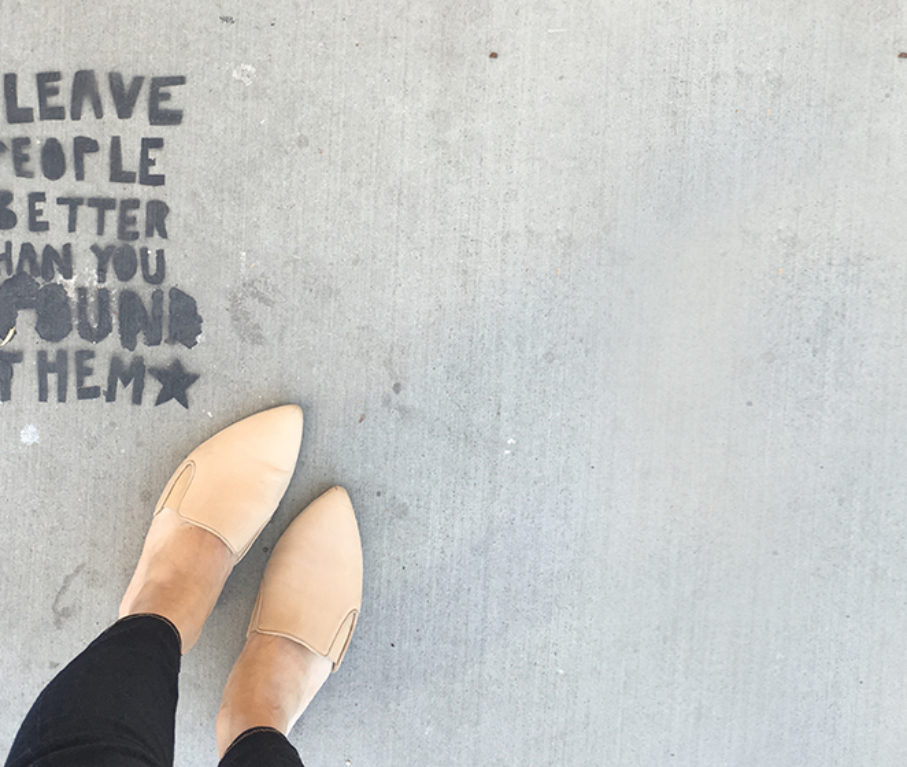 LEAVE
PEOPLE
BETTER
THAN YOU
FOUND
THEM